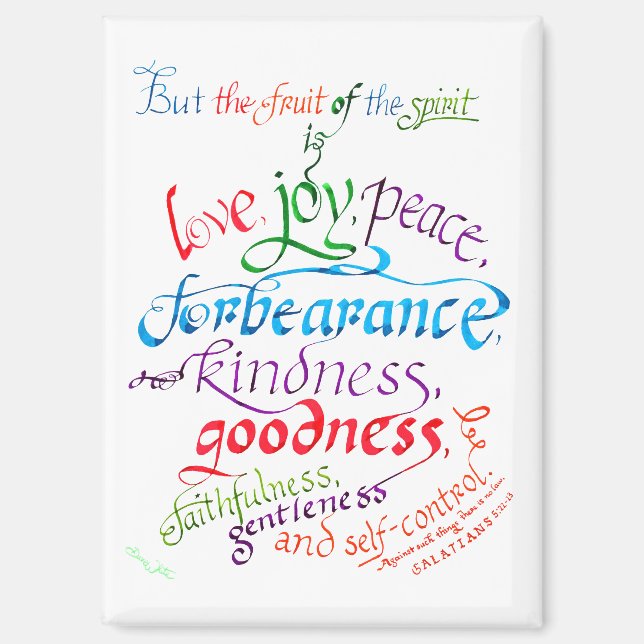 But the fruit of the spirit
is
love, joy, peace,
forbearance,
kindness,
goodness,
faithfulness,
gentleness
and self-control.
Against such things there is no law.
GALATIANS 5:22-23